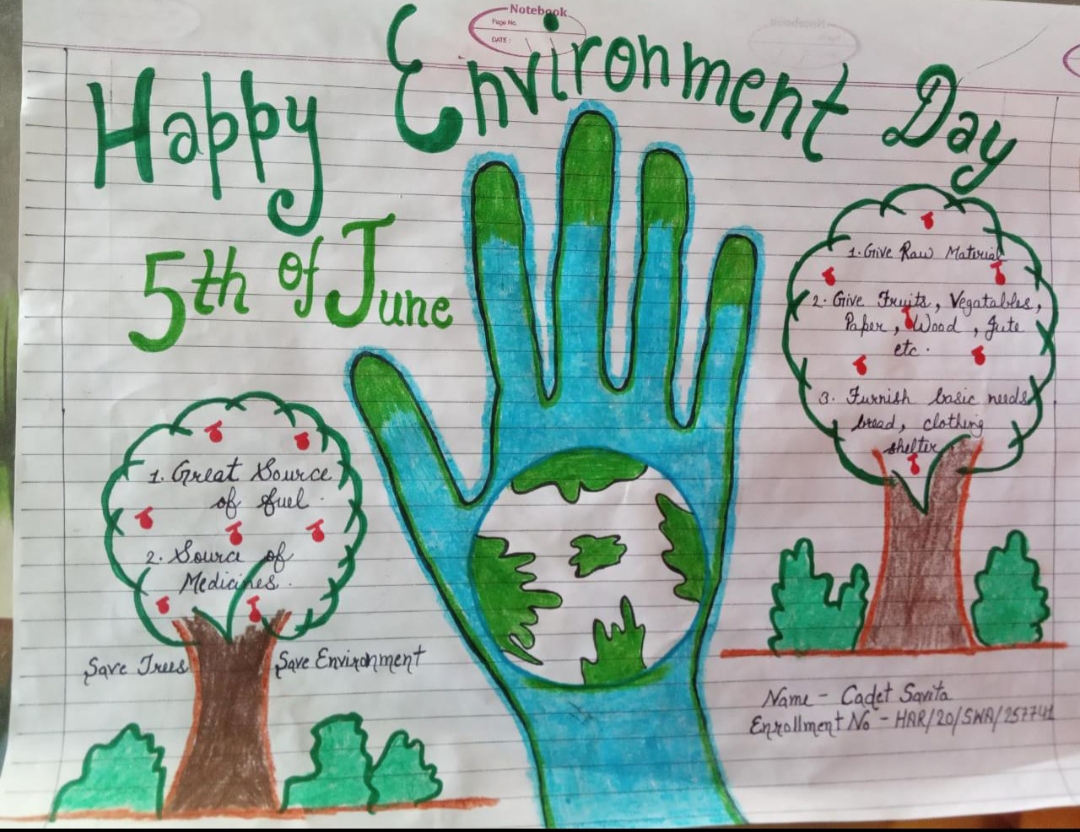 Notebook
Page No.
DATE :
Happy Environment Day
5th of June
1. Give Raw Material
2. Give Fruits, Vegatables,
Paper, Wood, Jute
etc.
3. Furnish basic needs
bread, clothing
shelter
1. Great Source
of fuel.
2. Source of
Medicines.
Save Trees
Save Environment
Name - Cadet Savita
Enrollment No - HAR/20/SWA/257741